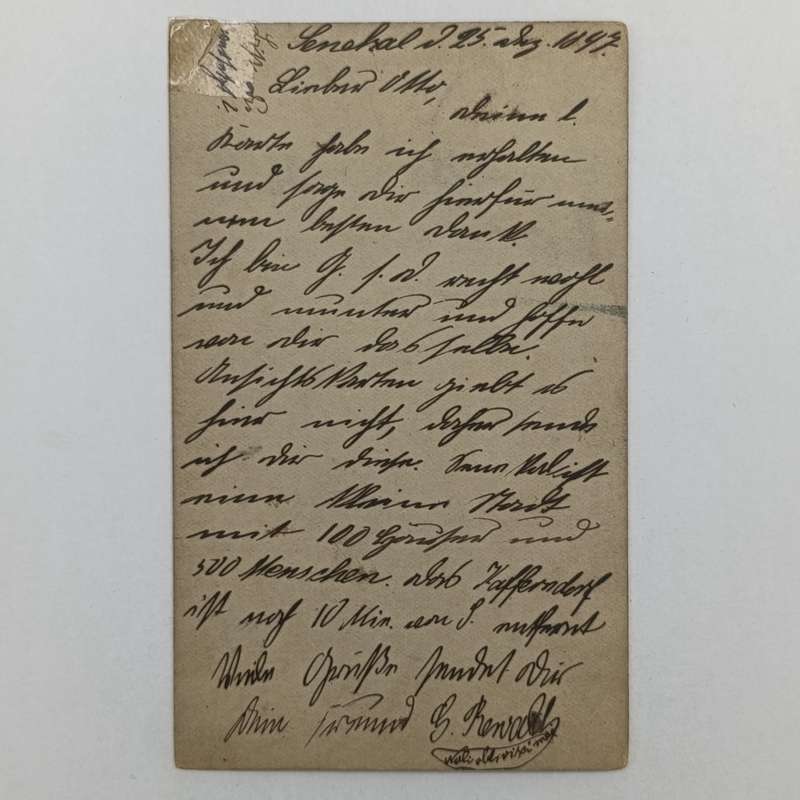 Senekal d. 25. Dez. 1897.
Lieber Otto,
Deine l.
Karte habe ich erhalten
und sage Dir hierfür mei-
nen besten Dank.
Ich bin G. s. d. recht wohl
und munter und hoffe
von Dir dasselbe.
Ansichtskarten giebt es
hier nicht, daher sende
ich Dir diese. Senekal ist
eine kleine Stadt
mit 100 Häuser und
500 Menschen. Das Kafferndorf
ist noch 10 Min. von S. entfernt
Viele Grüße sendet Dir
Dein Freund